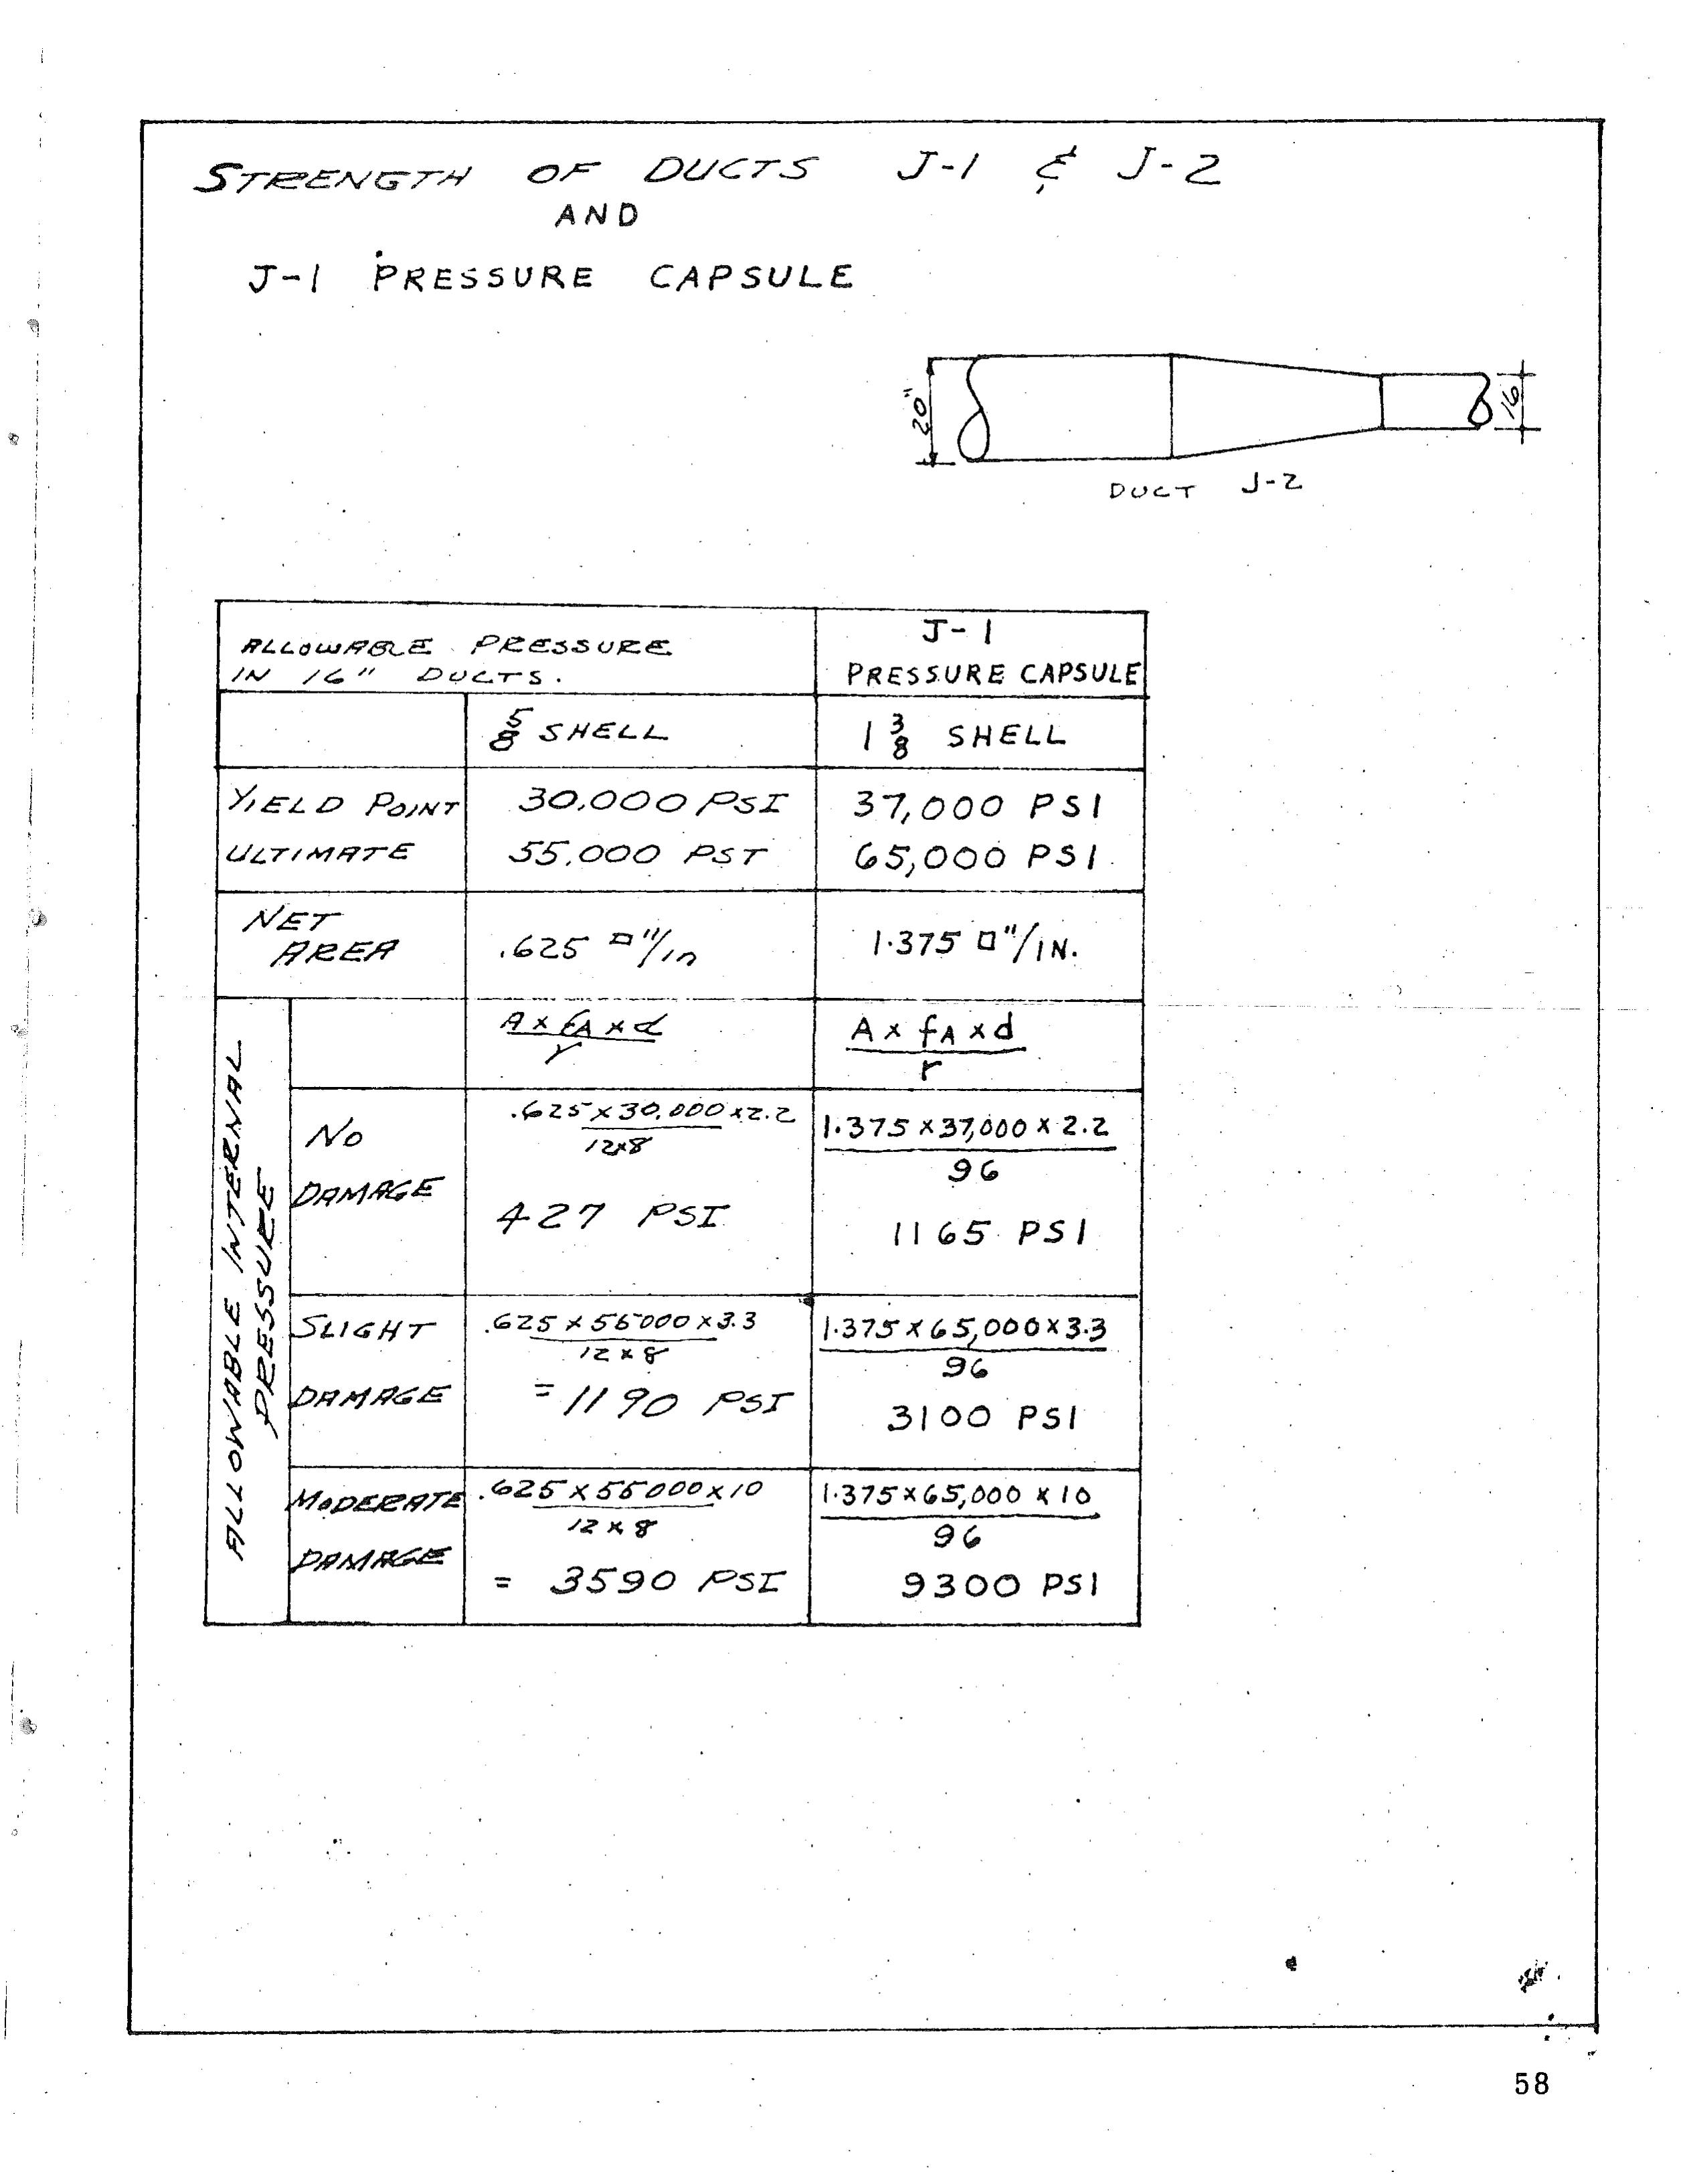 STRENGTH OF DUCTS J-1 & J-2
AND
J-1 PRESSURE CAPSULE
20"
16
DUCT J-2
ALLOWABLE PRESSURE
IN 16" DUCTS.
J-1
PRESSURE CAPSULE
5/8 SHELL
1 3/8 SHELL
YIELD POINT
30,000 PSI
37,000 PSI
ULTIMATE
55,000 PSI
65,000 PSI
NET
AREA
.625 □"/in
1.375 □"/IN.
ALLOWABLE INTERNAL
PRESSURE
A x fA x d
r
A x fA x d
r
NO
DAMAGE
.625 x 30,000 x 2.2
12x8
427 PSI
1.375 x 37,000 x 2.2
96
1165 PSI
SLIGHT
DAMAGE
.625 x 55000 x 3.3
12 x 8
= 1190 PSI
1.375 x 65,000 x 3.3
96
3100 PSI
MODERATE
DAMAGE
.625 x 55000 x 10
12 x 8
= 3590 PSI
1.375 x 65,000 x 10
96
9300 PSI
58